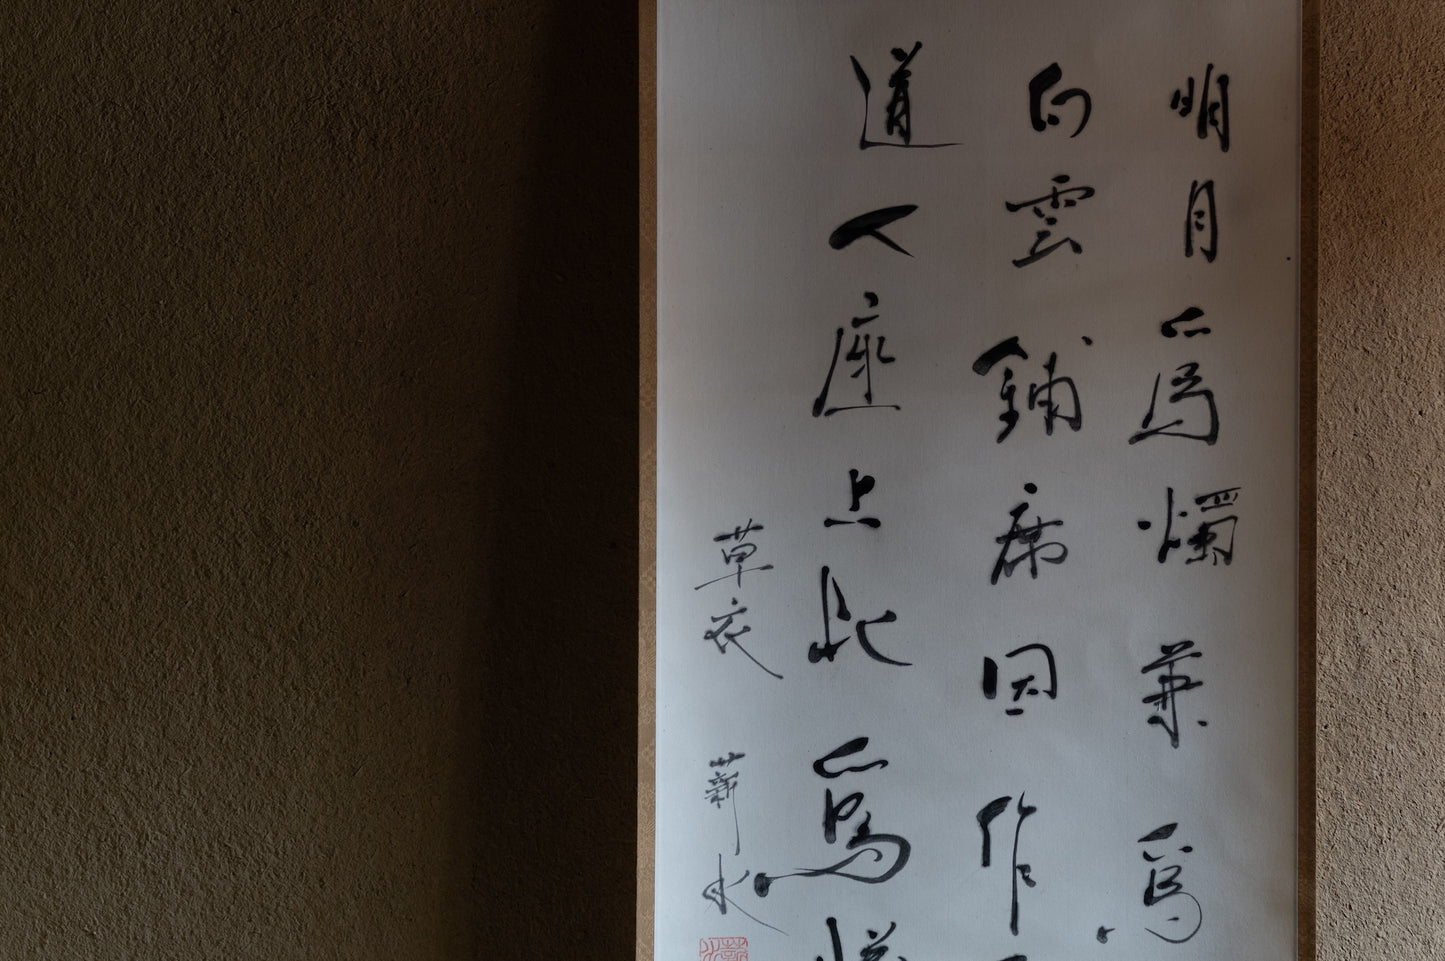 明月爲燭兼爲
白雲鋪席因作
道人座上此爲
草衣 薪水